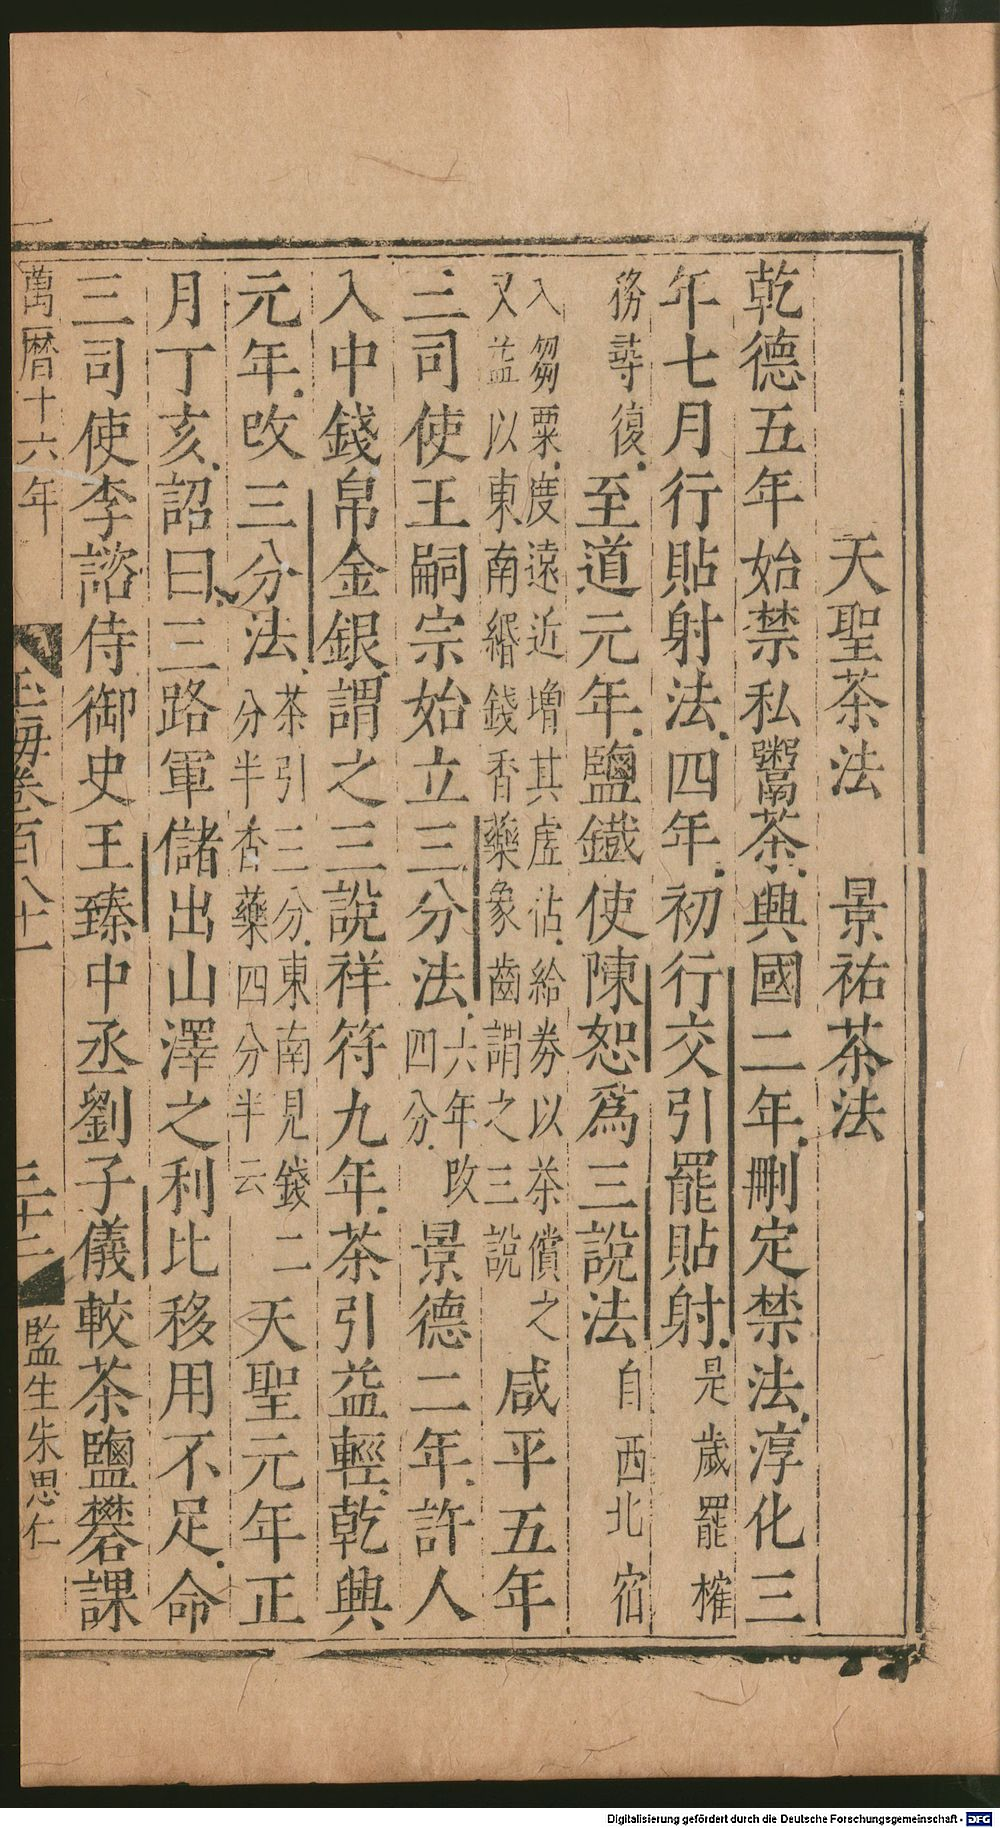 天聖茶法　景祐茶法
乾德五年始禁私鬻茶興國二年刪定禁法淳化三
年七月行貼射法四年初行交引罷貼射是歲罷榷
務尋復至道元年鹽鐵使陳恕爲三說法自西北宿
入芻粟度遠近增其虛沽給券以茶償之
又益以東南緡錢香藥象齒謂之三說
咸平五年
三司使王嗣宗始立三分法六年改四分景德二年許人
入中錢帛金銀謂之三說祥符九年茶引益輕乾興
元年改三分法茶引三分東南見錢二分半香藥四分半云天聖元年正
月丁亥詔曰三路軍儲出山澤之利比移用不足命
三司使李諮侍御史王臻中丞劉子儀較茶鹽礬課
萬曆十六年
玉海卷百八十一
三十二
監生朱思仁
Digitalisierung gefördert durch die Deutsche Forschungsgemeinschaft - DFG